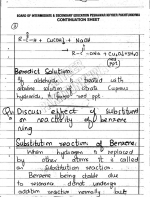 BOARD OF INTERMEDIATE & SECONDARY EDUCATION PESHAWAR KHYBER PAKHTUNKHWA
CONTINUATION SHEET
R-C-H + Cu(OH)₂ + NaOH
R-C-ONa + Cu₂O + H₂O
ppt
Benedict Solution:
The aldehyde is treated with
alkaline solution of Cupric
Q: Discuss effect of substituent
on reactivity of benzene
ring
Substitution reaction of Benzene:
When hydrogen is replaced
by other atoms it is called
an substitution reaction.
Benzene being stable due
to resonance donot undergo
addition reaction normally but